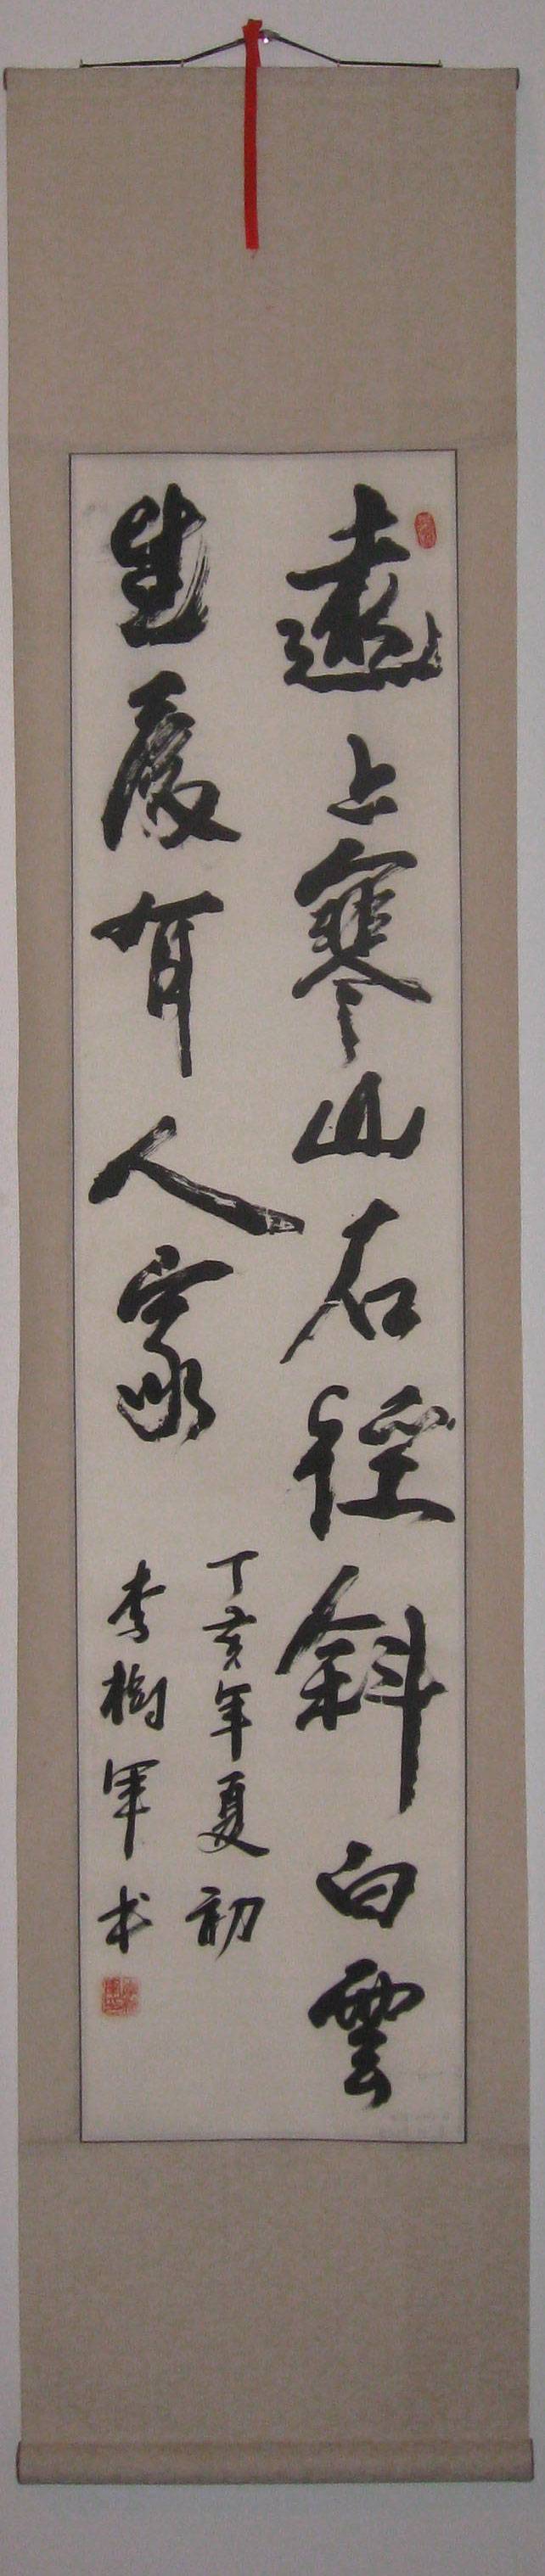 遠上寒山石径斜白雲
生處有人家
丁亥年夏初
李樹軍书